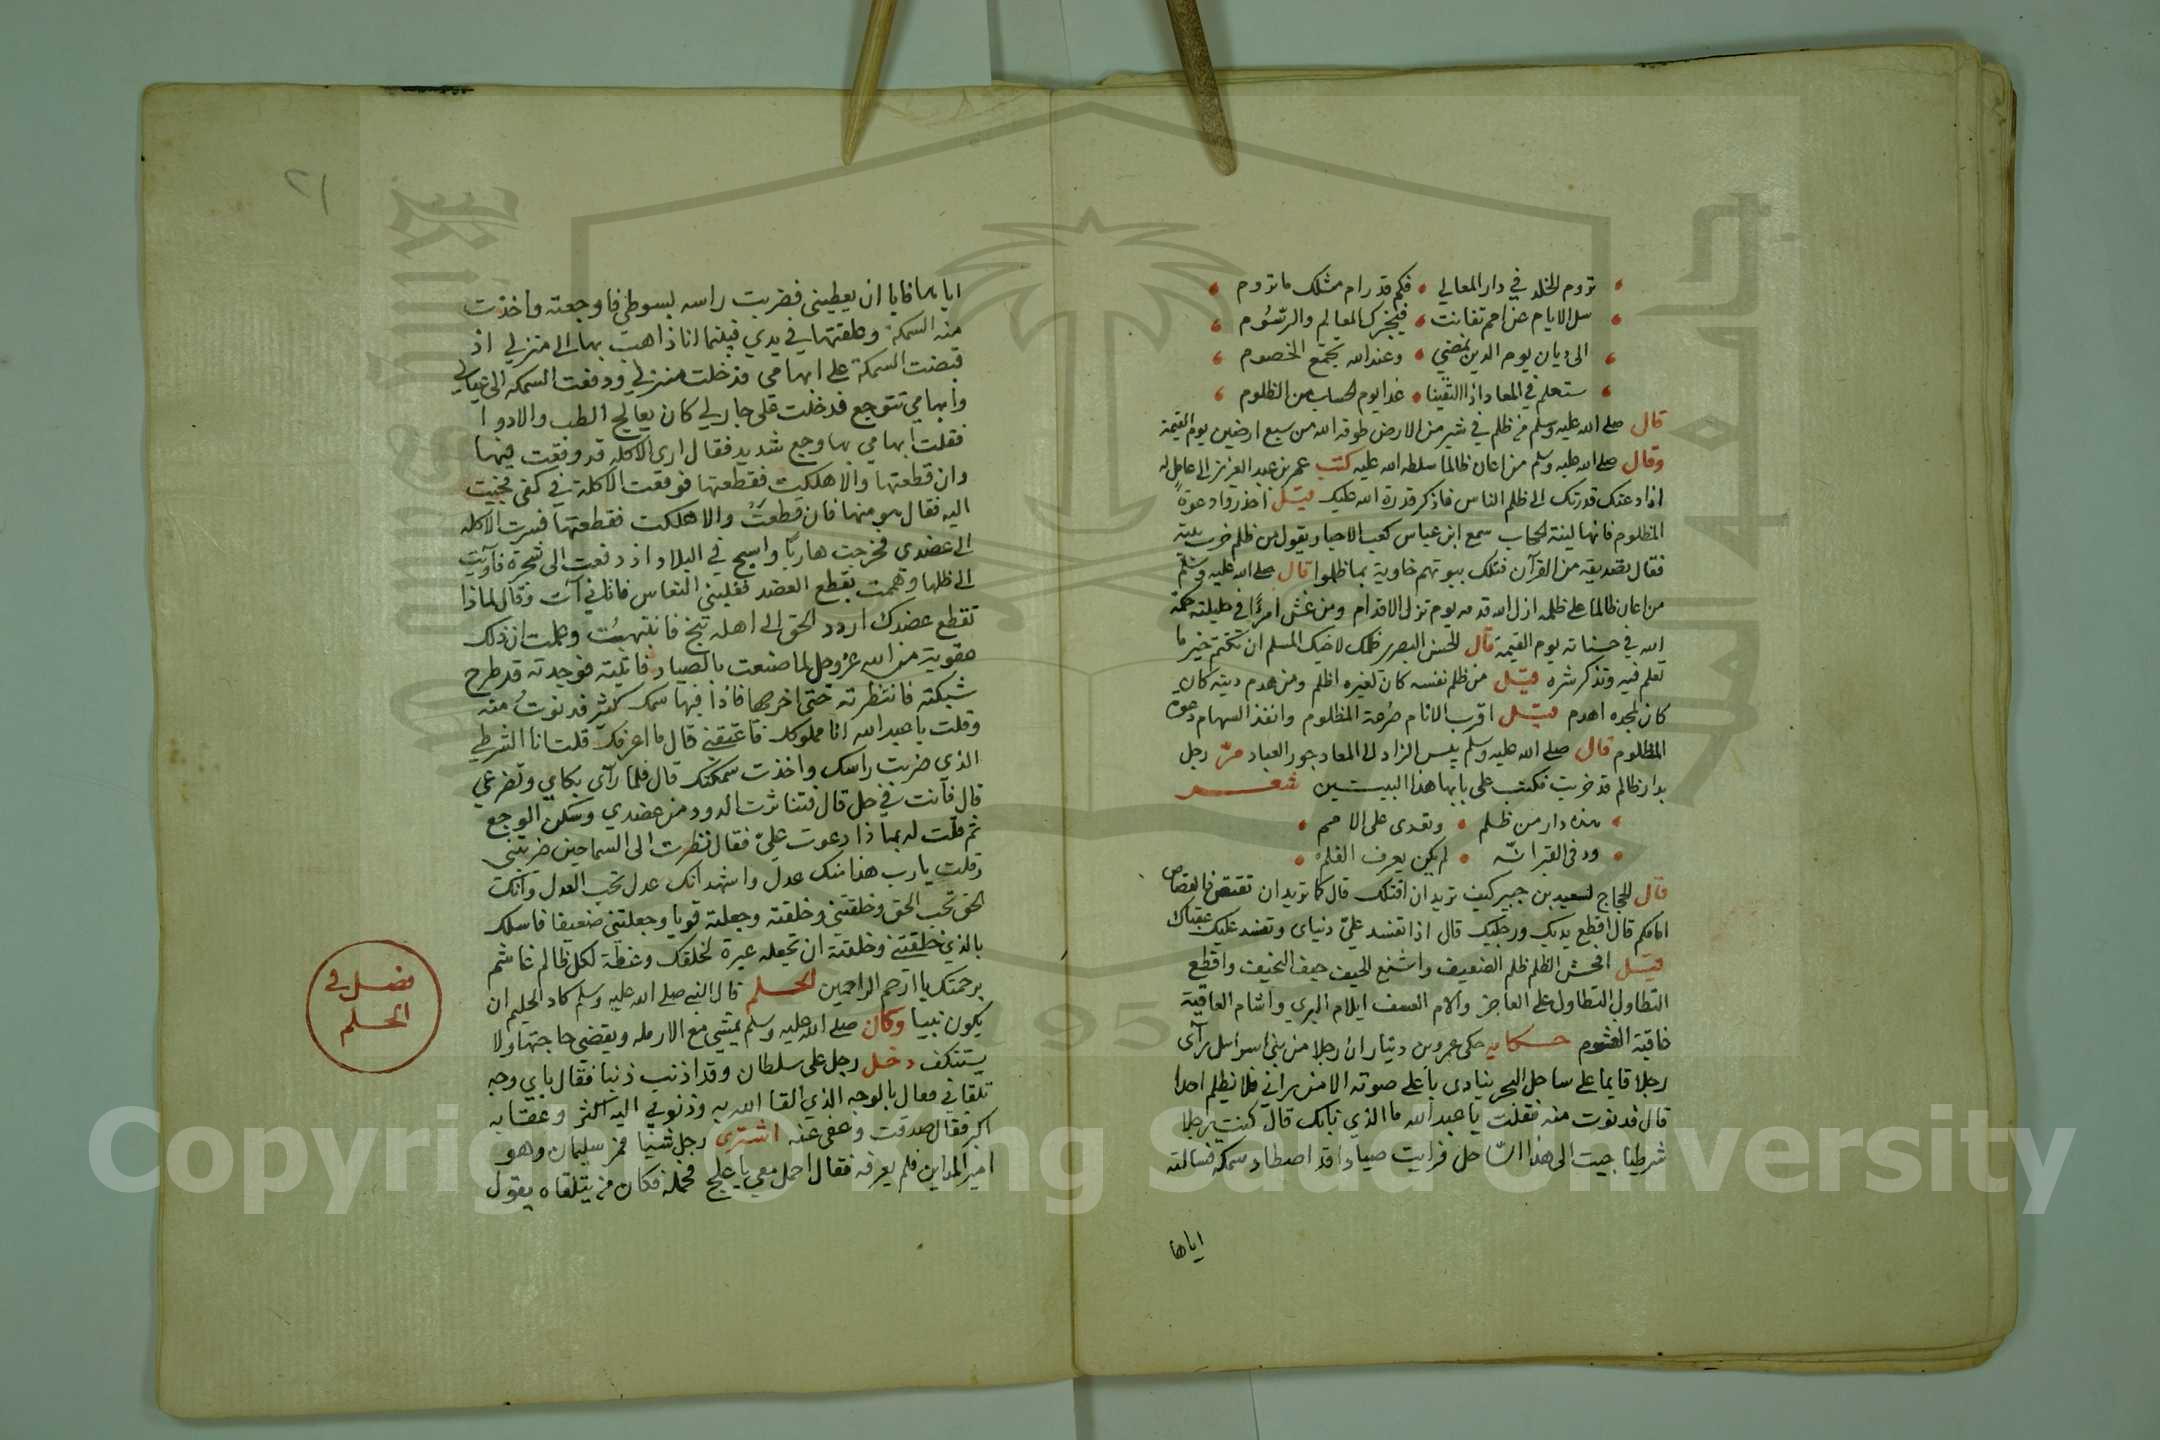 تروم الخلد في دار المعالي • فكم قد رام مثلك ما تروم
سل الايام عن امم تفانت • فتخبرك المعالم والرسوم
الى ديان يوم الدين نمضي • وعند الله تجتمع الخصوم
ستعلم في المعاد اذا التقينا • غدا يوم الحساب من الظلوم
قال صلى الله عليه وسلم من ظلم في شبر من الارض طوقه الله من سبع ارضين يوم القيمة
وقال صلى الله عليه وسلم من اعان ظالما سلطه الله عليه كتب عمر بن عبد العزيز الى عامل له
اذا دعتك قدرتك الى ظلم الناس فاذكر قدرة الله عليك قيل احذروا دعوة
المظلوم فانها لينة الحجاب سمع ابن عباس كعب الاحبار يقول من ظلم خرب بيته
فقال تصديقه من القرآن فتلك بيوتهم خاوية بما ظلموا قال صلى الله عليه وسلم
من اعان ظالما على ظلمه ازل الله قدمه يوم تزل الاقدام ومن غش امرأ في
الله في حسناته يوم القيمة قال الحسن البصري ظلمك لاخيك المسلم ان تكتم خير ما
تعلم فيه وتذكر شره قيل من ظلم نفسه كان لغيره اظلم ومن هدم دينه كان
كان لمجده اهدم قيل اقرب الانام صرعة المظلوم وانفذ السهام دعوة
المظلوم قال صلى الله عليه وسلم بيس الزاد الى المعاد جور العباد مر رجل
بدار ظالم قد خربت فكتب على بابها هذا البيتين شعر
هذه دار من ظلم • وتعدى على الامم
ود في القبر انه • لم يكن يعرف القلم
قال الحجاج لسعيد بن جبير كيف تريد ان اقتلك قال كما تريد ان تقتص فالقصاص
امامكم قال اقطع يديك ورجليك قال اذا تفسد علي دنياى وتفسد عليك عقباك
قيل افحش الظلم ظلم الضعيف واشنع الحيف حيف النحيف واقطع
التطاول التطاول على العاجز والام العسف ايلام البري واشام العاقبة
عاقبة الغشوم حكاية حكى عمرو بن دينار ان رجلا من بني اسرائيل رآى
رجلا قايما على ساحل البحر ينادى باعلى صوته الا من يراني فلا يظلم احدا
قال فدنوت منه فقلت يا عبد الله ما الذي نابك قال كنت رجلا
شرطيا جيت الى هذا الساحل فرايت صيادا قد اصطاد سمكة فسالته
اياها
٢١
اياها فابا ان يعطيني فضربت راسه بسوطي فاوجعته واخذت
منه السمكة وعلقتها في يدي فبينما انا ذاهب بها الى منزلي اذ
قبضت السمكة على ابهامي فدخلت منزلي ودفعت السمكة الى عيالي
وابهامي تتوجع فدخلت على جار لي كان يعالج الطب والادوا
فقلت ابهامي بها وجع شديد فقال ارى الاكلة قد وقعت فيها
وان قطعتها والا هلكت فقطعتها فوقعت الاكلة في كفي فجيت
اليه فقال هو منها فان قطعت والا هلكت فقطعتها فسرت الاكله
الى عضدي فخرجت هاربا واسيح في البلاد اذ دفعت الى شجرة فآويت
الى ظلها وهممت بقطع العضد فغلبني النعاس فاتاني آت وقال لماذا
تقطع عضدك اردد الحق الى اهله تنج فانتبهت وعلمت ان ذلك
عقوبة من الله عز وجل لما صنعت بالصياد فاتيته فوجدته قد طرح
شبكته فانتظرته حتى اخرجها فاذا فيها سمك كثير فدنوت منه
وقلت يا عبد الله انا مملوكك فاعتقني قال ما اعرفك قلت انا الشرطي
الذى ضربت راسك واخذت سمكتك قال فلما رآى بكاي وتضرعي
قال فآنت في حل قال فتناثرت الدود من عضدي وسكن الوجع
ثم قلت له بماذا دعوت علي فقال نظرت الى السما حين ضربتني
وقلت يا رب هذا منك عدل واشهد انك عدل تحب العدل وآنت
الحق تحب الحق وخلقتني وخلقته وجعلته قويا وجعلتني ضعيفا فاسلك
بالذي خلقتني وخلقته ان تجعله عبرة لخلقك وعظة لكل ظالم غاشم
برحمتك يا ارحم الراحمين الحلم قال النبي صلى الله عليه وسلم كاد الحليم ان
يكون نبيا وكان صلى الله عليه وسلم يمشي مع الارمله ويقضي حاجتها ولا
يستنكف دخل رجل على سلطان وقد اذنب ذنبا فقال باي وجه
تلقاني فقال بالوجه الذي القا الله به وذنوبي اليه اكثر وعقابه
اكبر فقال صدقت وعفى عنه اشترى رجل شيا فمر سليمان وهو
امير المداين فلم يعرفه فقال احمل معي يا علج فحمله فكان من يتلقاه يقول
فصل في
الحلم
Copyright © King Saud University